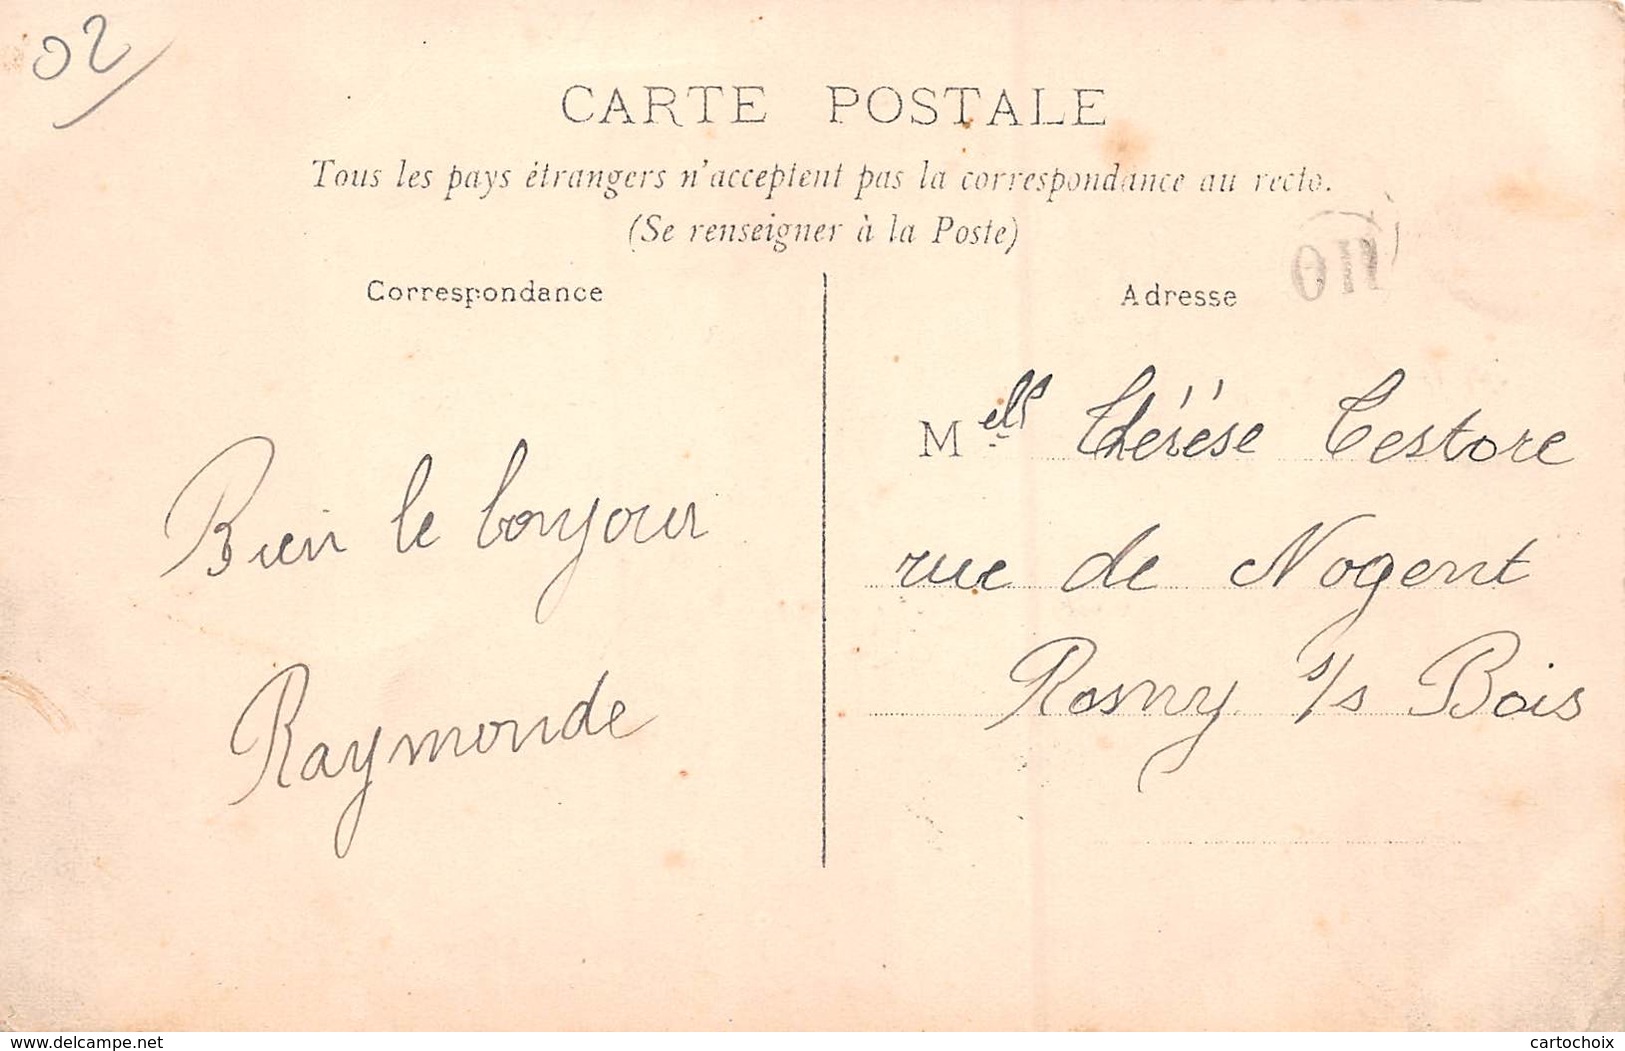 02
CARTE POSTALE
Tous les pays étrangers n'acceptent pas la correspondance au recto.
(Se renseigner à la Poste)
Correspondance
Bien le bonjour
Raymonde
Adresse
Melle Thérése Testore
rue de Nogent
Rosny s/s Bois
www.delcampe.net
cartochoix